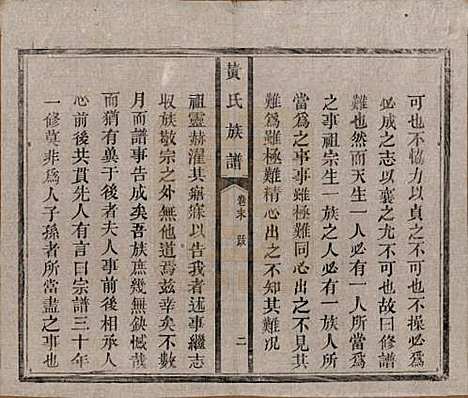 可也不恊力以貞之不可也不操必爲
必成之志以襄之尤不可也故曰修譜
難也然而天生一人必有一人所當爲
之事祖宗生一族之人必有一族人所
當爲之事事雖極難同心出之不見其
難爲雖極難精心出之不知其難況
黃氏族譜
卷末
跋
二
祖靈赫濯其寤寐以告我者述事繼志
收族敬宗之外無他道焉兹幸矣不數
月而譜事告成矣吾族庶幾無缺憾哉
而猶有冀于後者夫人事前後相承人
心前後共貫先人有言曰宗譜三十年
一修莫非爲人子孫者所當盡之事也